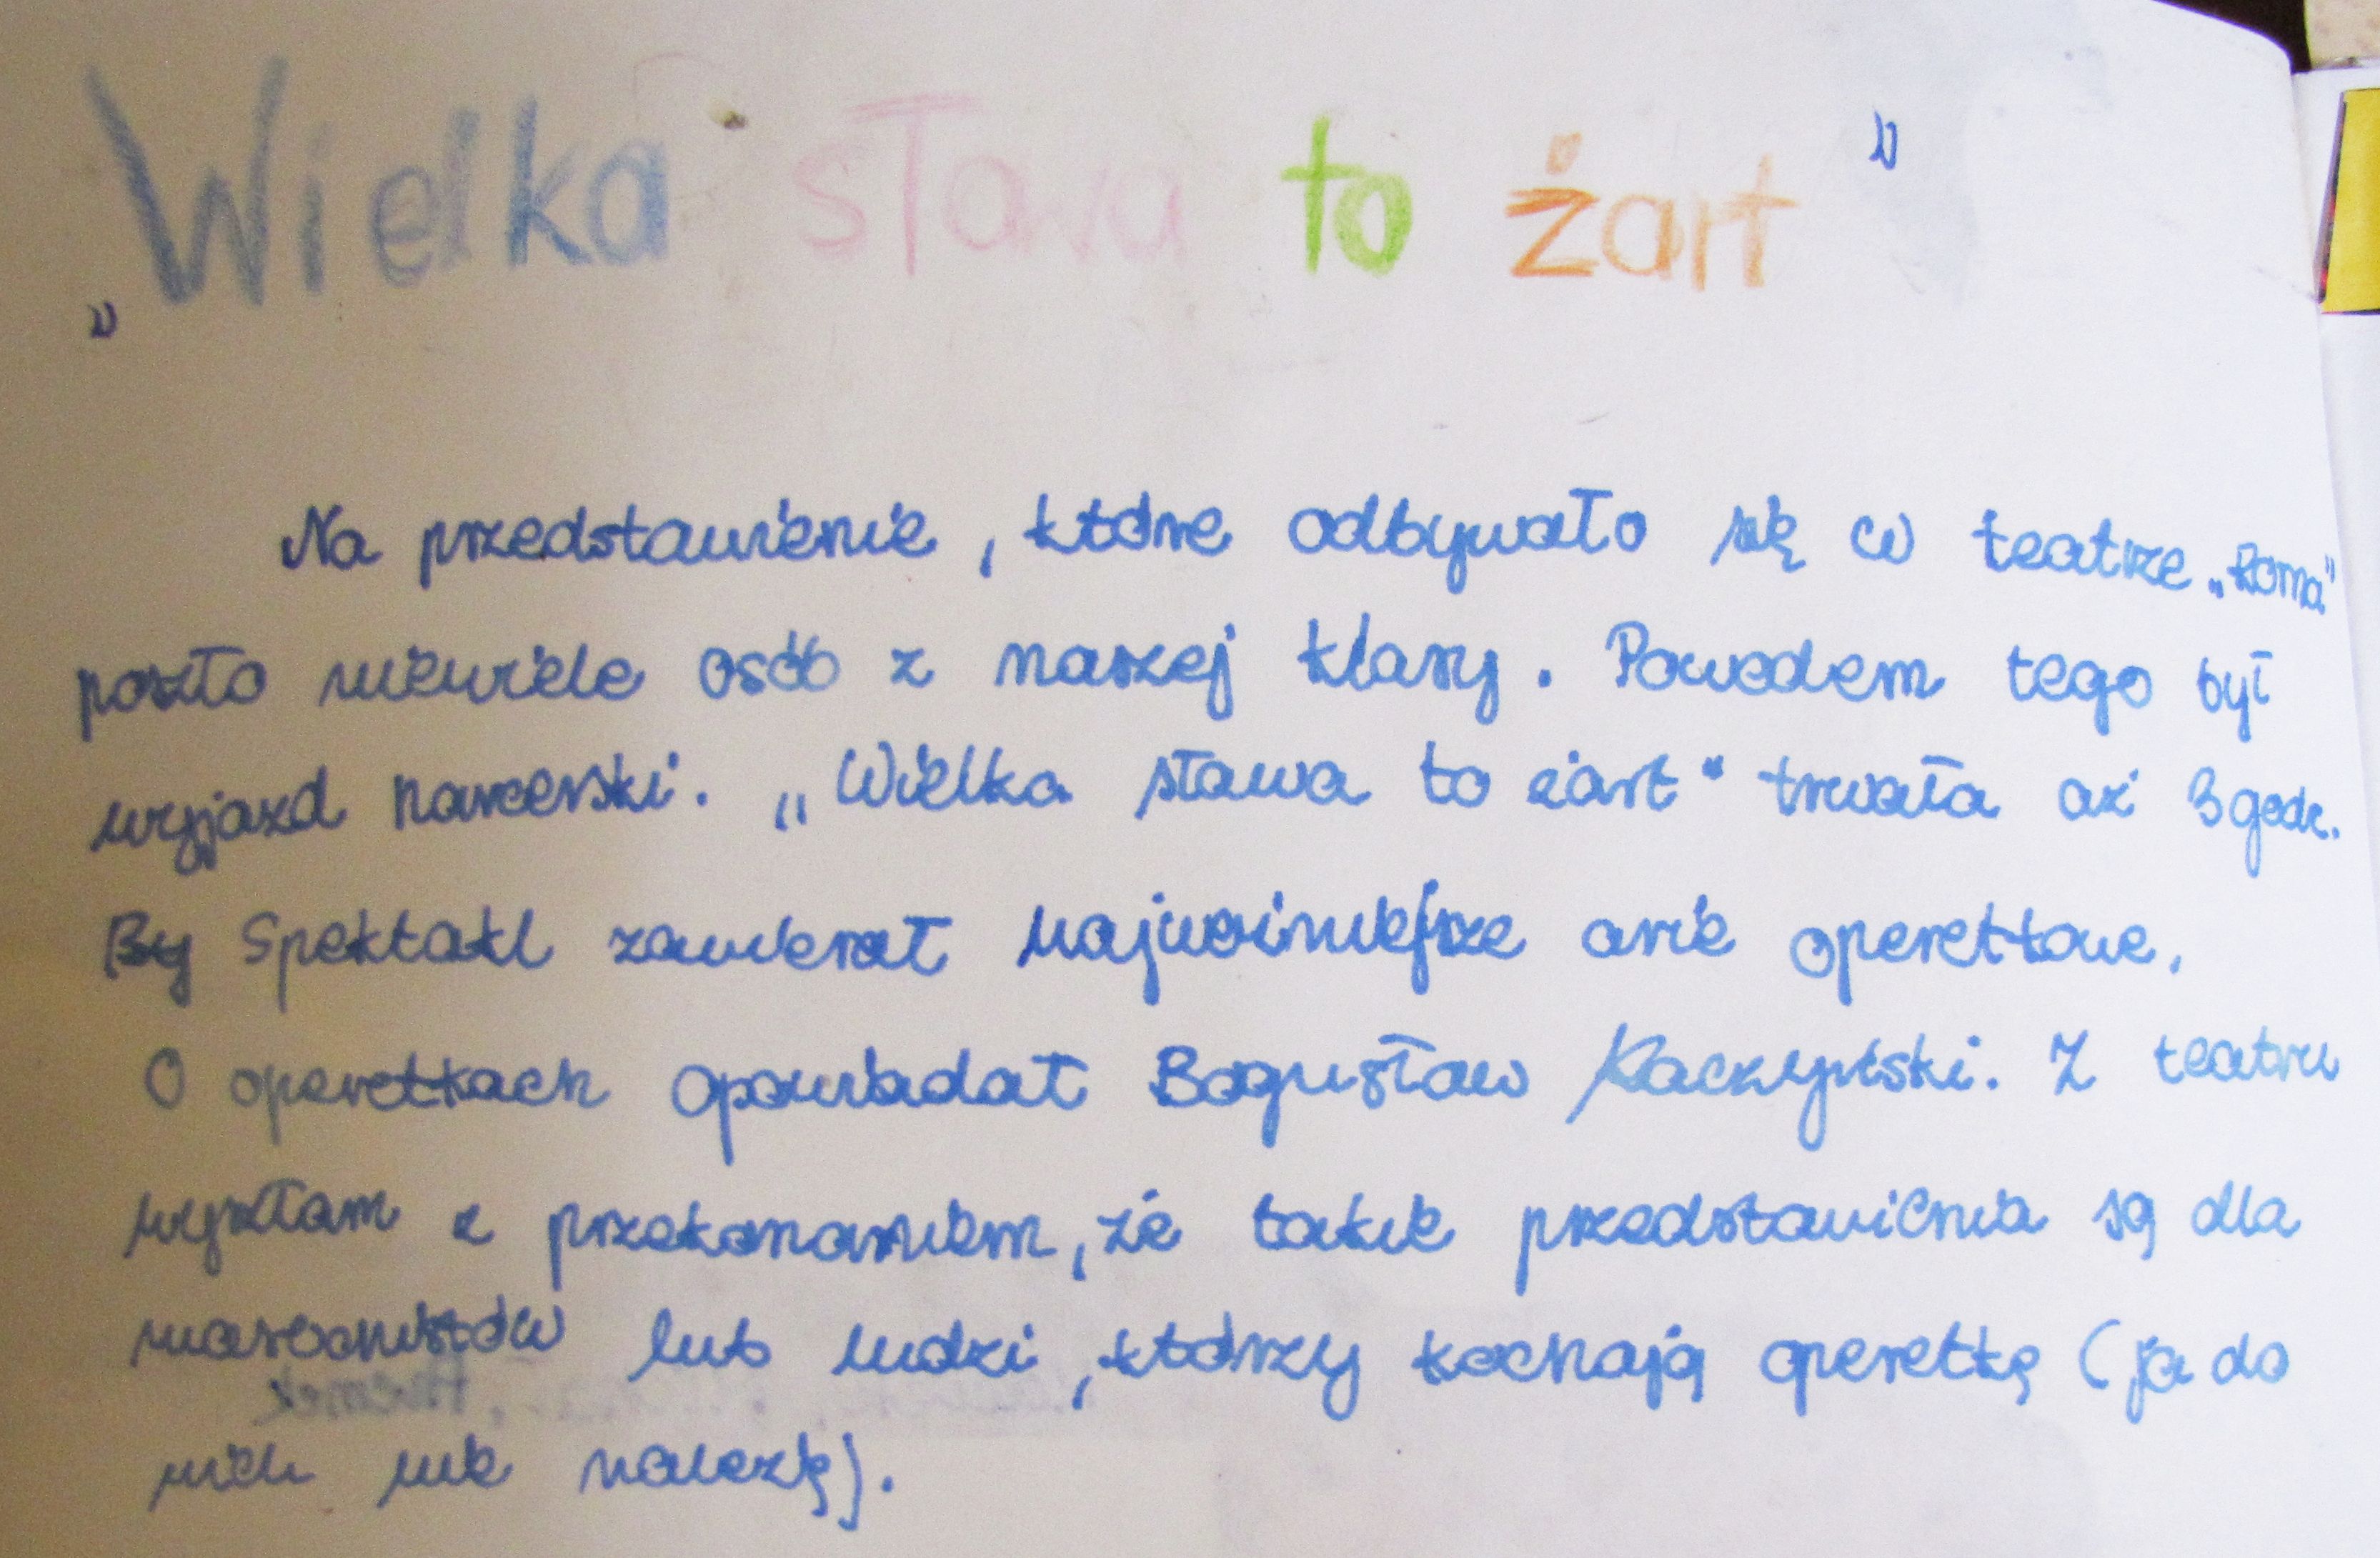 „Wielka sława to żart"
Na przedstawienie, które odbywało się w teatrze „Roma"
poszło niewiele osób z naszej klasy. Powodem tego był
wyjazd harcerski. „Wielka sława to żart" trwała aż 3 godz.
By Spektakl zawierał najważniejsze arie operetkowe.
O operetkach opowiadał Bogusław Kaczyński. Z teatru
wyszłam z przekonaniem, że takie przedstawienia są dla
lub ludzi, którzy kochają operetkę (ja do
nich nie należę).